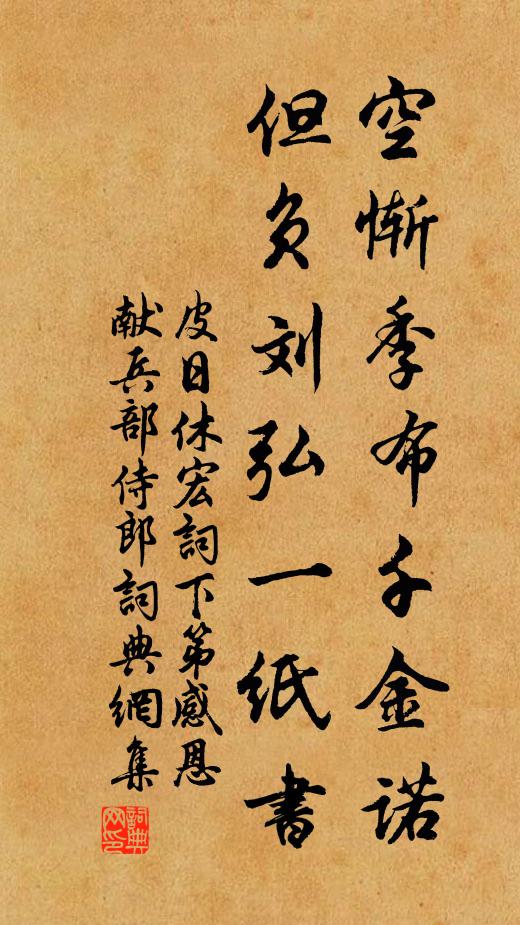 空惭季布千金诺
但负刘弘一纸書
皮日休宏詞下第感恩
献兵部侍郎詞典網集
詞典网印